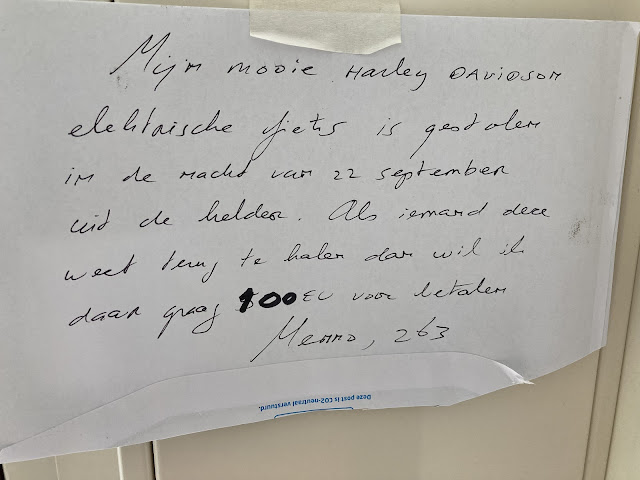 Mijn mooie Harley DAVIDSON
elektrische fiets is gestolen
in de nacht van 22 september
uit de kelder. Als iemand deze
weet terug te halen dan wil ik
daar graag 100 EU voor betalen
Menno, 263
Deze post is CO2-neutraal verstuurd.